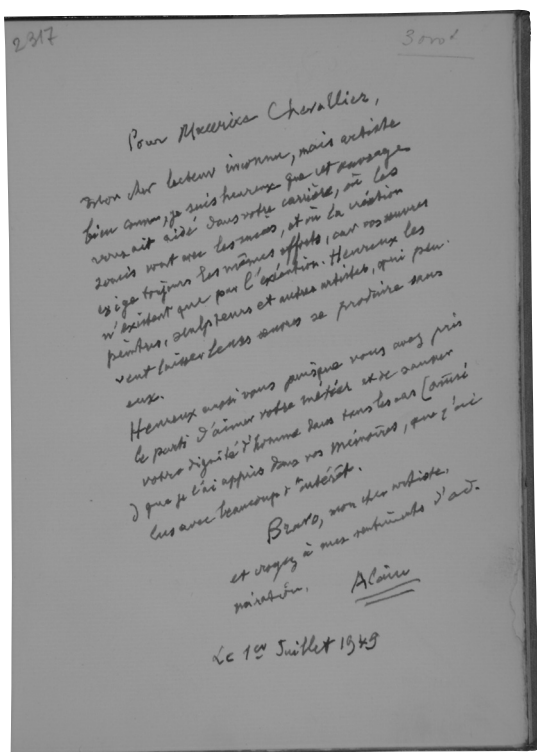 2317
Pour Maurice Chevallier,
Mon cher lecteur inconnu, mais artiste
bien connu, je suis heureux que cet ouvrage
vous ait aidé dans votre carrière, où les
soucis vont avec les succès, et où la création
exige toujours les mêmes efforts, car vos œuvres
n'existent que par l'exécution. Heureux les
peintres, sculpteurs et autres artistes, qui peu-
vent laisser leurs œuvres se produire sans
eux.
Heureux aussi vous puisque vous avez pris
le parti d'aimer votre métier et de sauver
votre dignité d'homme dans tous les cas
que je l'ai appris dans vos mémoires, que j'ai
lus avec beaucoup d'intérêt.
Bravo, mon cher artiste,
et croyez à mes sentiments d'ad-
miration.
Alain
Le 1er Juillet 1949